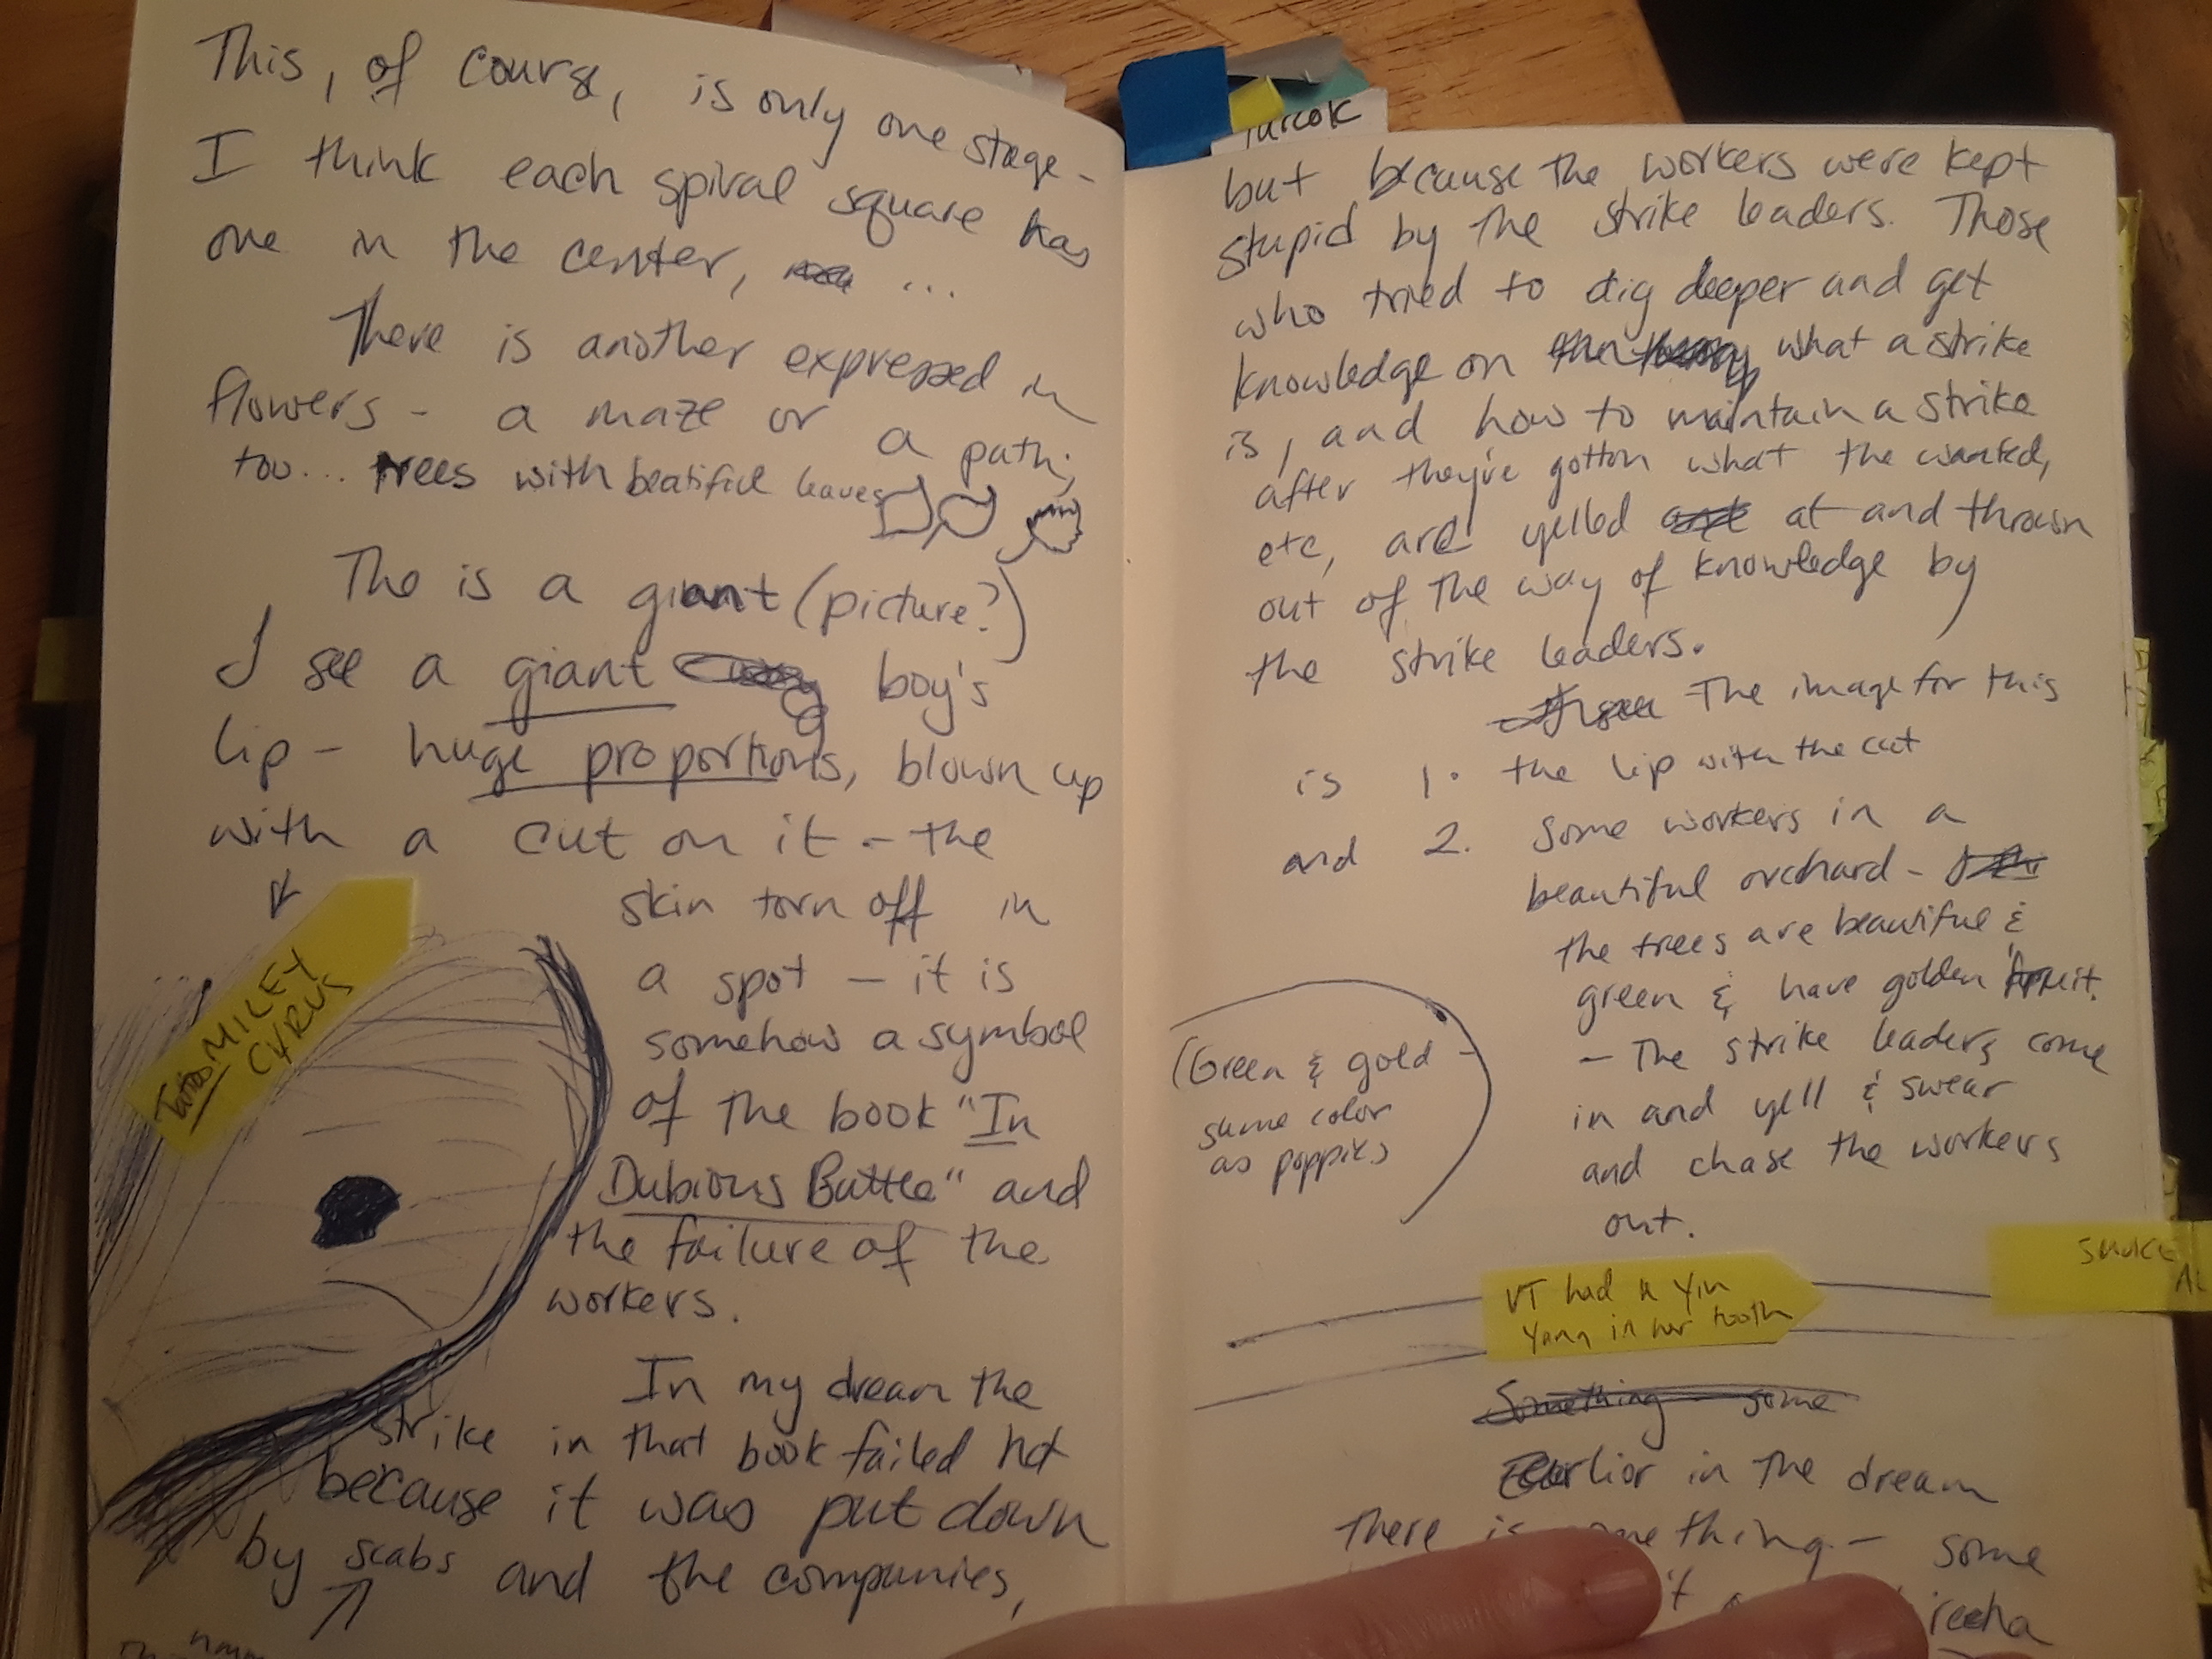 This, of course, is only one stage -
I think each spiral square has
one in the center, ...
There is another expressed in
flowers - a maze or a path,
too... trees with beatiful leaves
The is a giant (picture?)
I see a giant boy's
lip - huge proportions, blown up
with a cut on it - the
skin torn off in
a spot - it is
somehow a symbol
of the book "In
Dubious Battle" and
the failure of the
workers.
In my dream the
strike in that book failed not
because it was put down
by scabs and the companies,
MILEY
CYRUS
turcok
but because the workers were kept
stupid by the strike leaders. Those
who tried to dig deeper and get
knowledge on what a strike
is, and how to maintain a strike
after they're gotton what the wanted,
etc, are yelled at and thrown
out of the way of knowledge by
the strike leaders.
The image for this
is 1. the lip with the cut
and 2. Some workers in a
beautiful orchard -
the trees are beautiful &
green & have golden fruit.
- The strike leaders come
in and yell & swear
and chase the workers
out.
(Green & gold -
same color
as poppies)
VT had a Yin
Yang in her tooth
Something some
Earlior in the dream
There is something - some